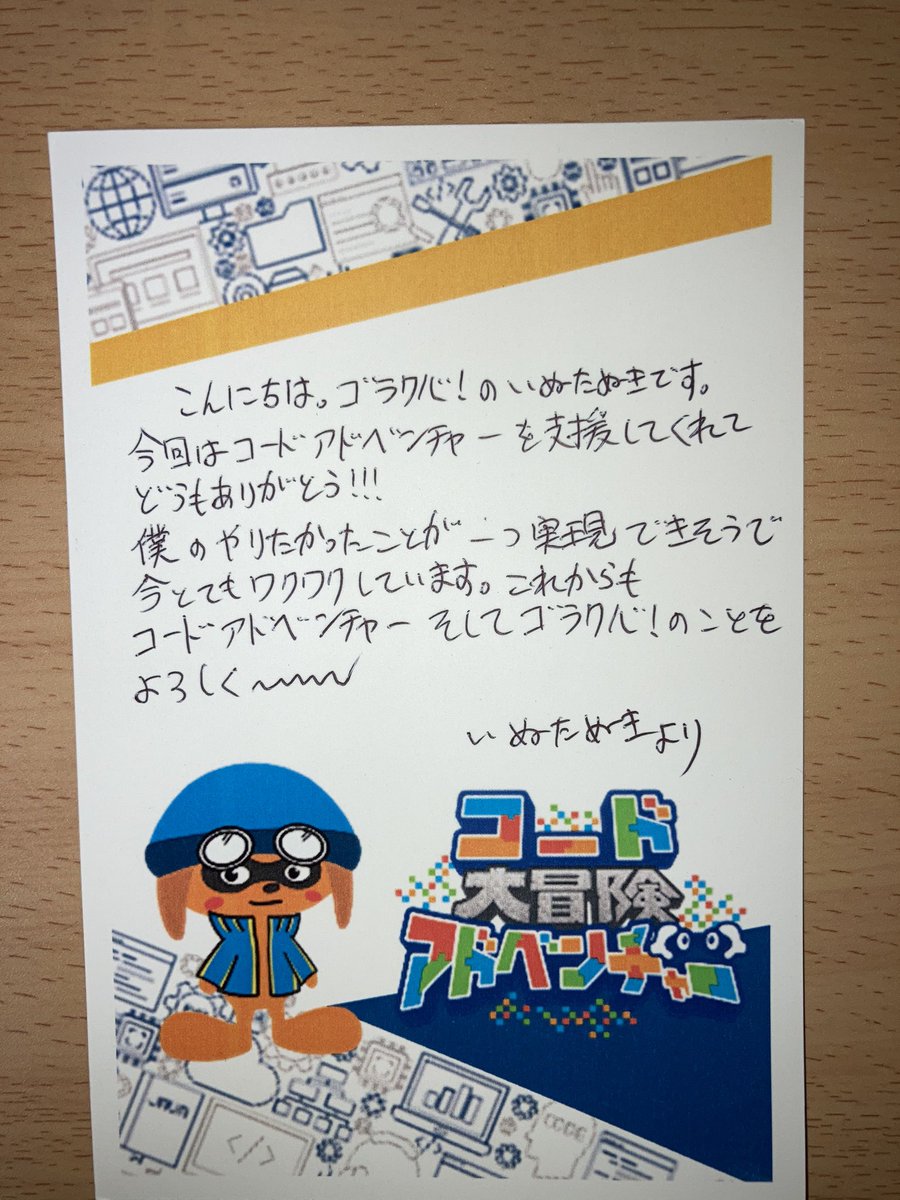 こんにちは。ゴラクバ！のいぬたぬきです。
今回はコードアドベンチャーを支援してくれて
どうもありがとう！！！
僕のやりたかったことが一つ実現できそうで
今とてもワクワクしています。これからも
コードアドベンチャーそしてゴラクバ！のことを
よろしく〜〜〜
いぬたぬきより
コード
大冒険
アドベンチャー
</>
CODE